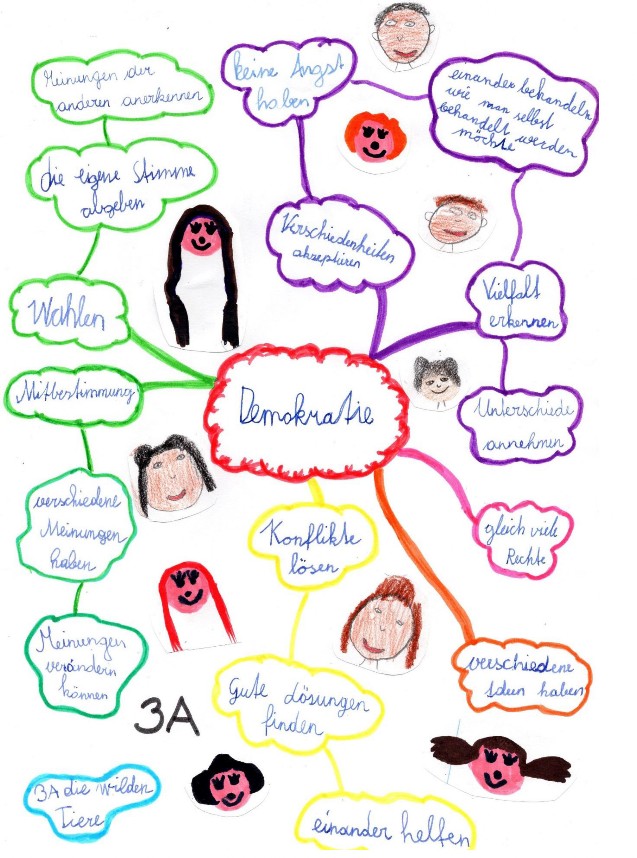 Meinungen der
anderen anerkennen
die eigene Stimme
abgeben
Wahlen
keine Angst
haben
einander behandeln
wie man selbst
behandelt werden
möchte
Verschiedenheiten
akzeptieren
Vielfalt
erkennen
Unterschiede
annehmen
Demokratie
Mitbestimmung
verschiedene
Meinungen
haben
Meinungen
verändern
können
gleich viele
Rechte
Konflikte
lösen
verschiedene
Ideen haben
Gute Lösungen
finden
einander helfen
3A
3A die wilden
Tiere